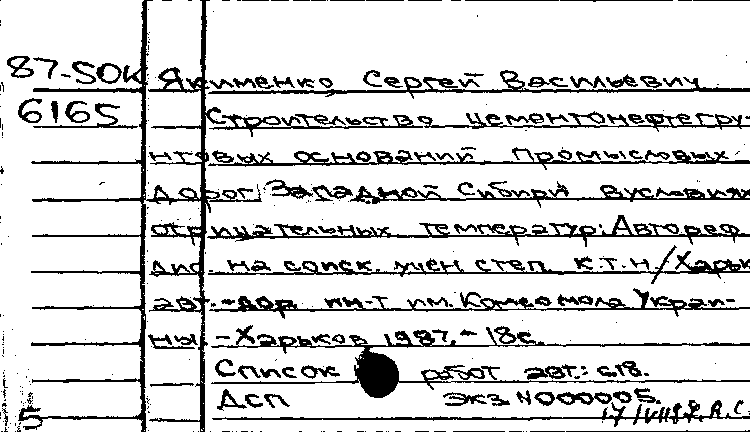 87-50К Якименко Сергей Васильевич
6165 Строительство цементонефтегру-
нтовых оснований промысловых
дорог Западной Сибири в условиях
отрицательных температур: Автореф.
дис. на соиск. учен степ. к.т.н. / Харьк
авт.-дор. ин-т им. Комсомола Украи-
ны. - Харьков 1987. - 18с.
Список работ авт.: с.18.
ДСП Экз N000005.